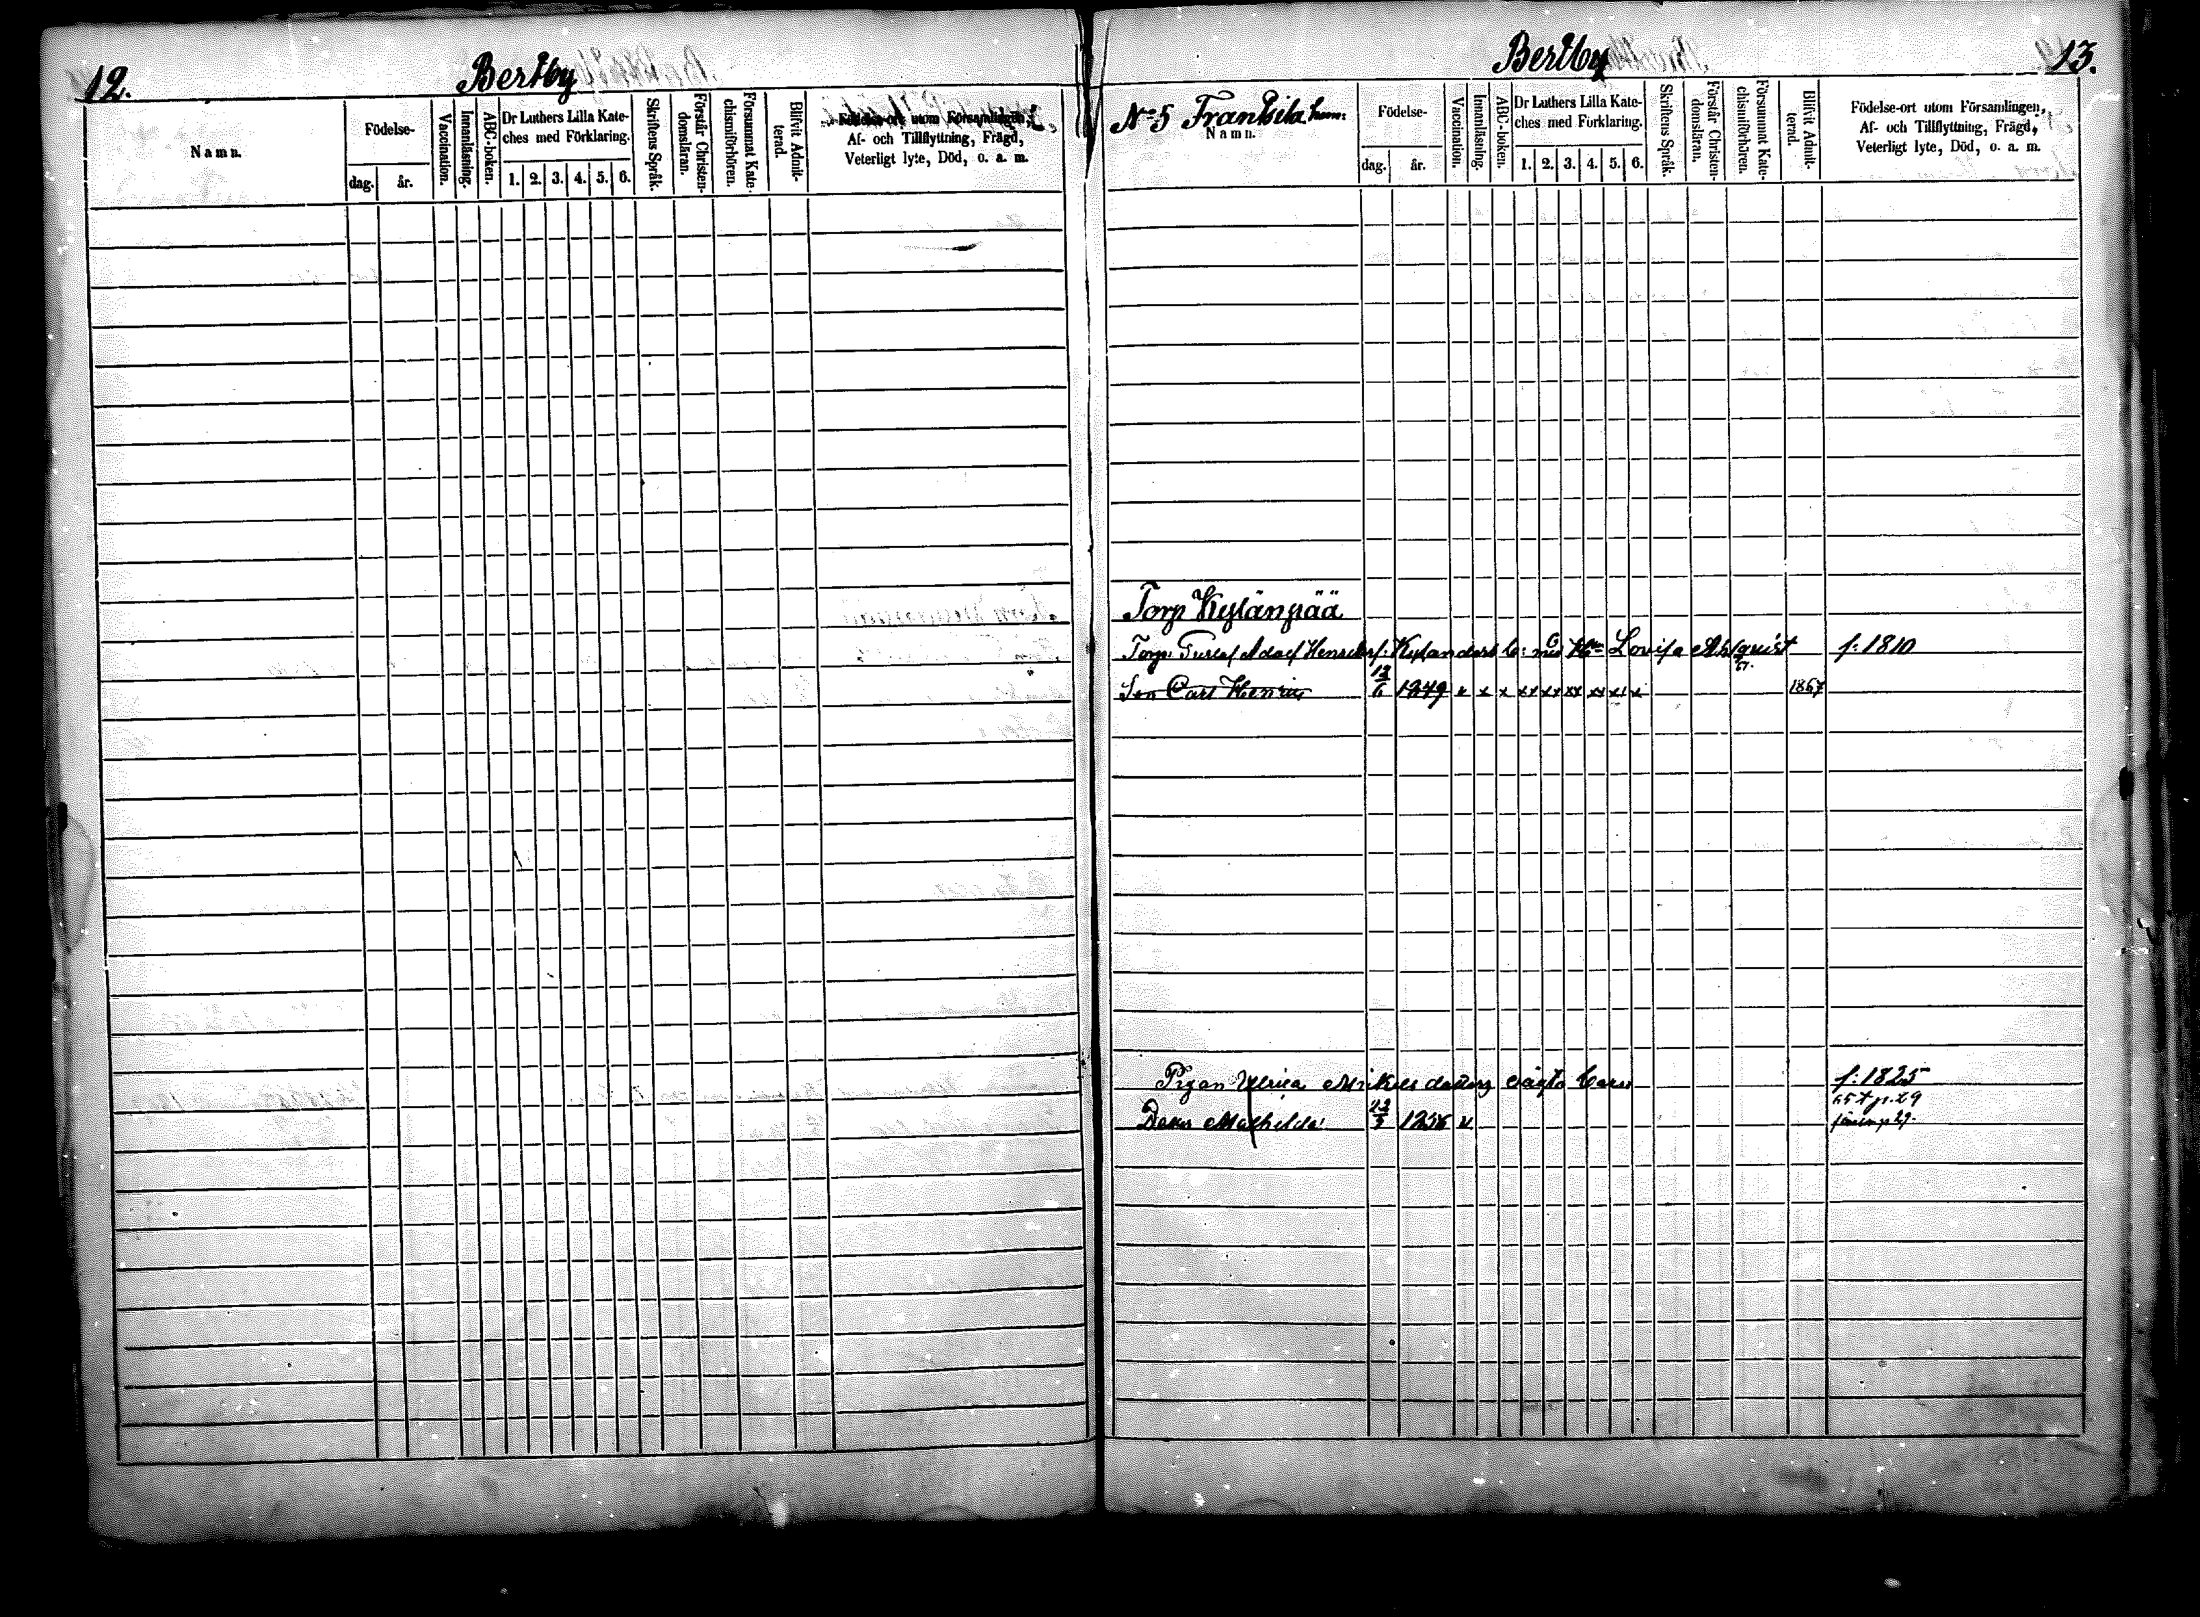 12.
Bertby
Namn.
Födelse-
dag.
år.
Vaccination.
Innanläsning.
ABC-boken.
Dr Luthers Lilla Kate-
ches med Förklaring.
1. 2. 3. 4. 5. 6.
Skriftens Språk.
Förstår Christen-
domsläran.
Försummat Kate-
chismiförhören.
Blifvit Admit-
terad.
Födelse-ort utom Församlingen,
Af- och Tillflyttning, Frägd,
Veterligt lyte, Död, o. a. m.
Bertby
13.
No 5 Franksila
Namn.
Födelse-
dag.
år.
Vaccination.
Innanläsning.
ABC-boken.
Dr Luthers Lilla Kate-
ches med Förklaring.
1. 2. 3. 4. 5. 6.
Skriftens Språk.
Förstår Christen-
domsläran.
Försummat Kate-
chismiförhören.
Blifvit Admit-
terad.
Födelse-ort utom Församlingen,
Af- och Tillflyttning, Frägd,
Veterligt lyte, Död, o. a. m.
Torp Kylänpää
Torp. Gustaf Adolf Kylanders b: med Lovisa Ahlquist f: 1810
Son Carl Henric 12/6 1849 x x x xx xx xx xx xx x 1867
Pigan Ulrica Mikelsdotters oägta barn f: 1825
Dotter Mathilda 1856 x